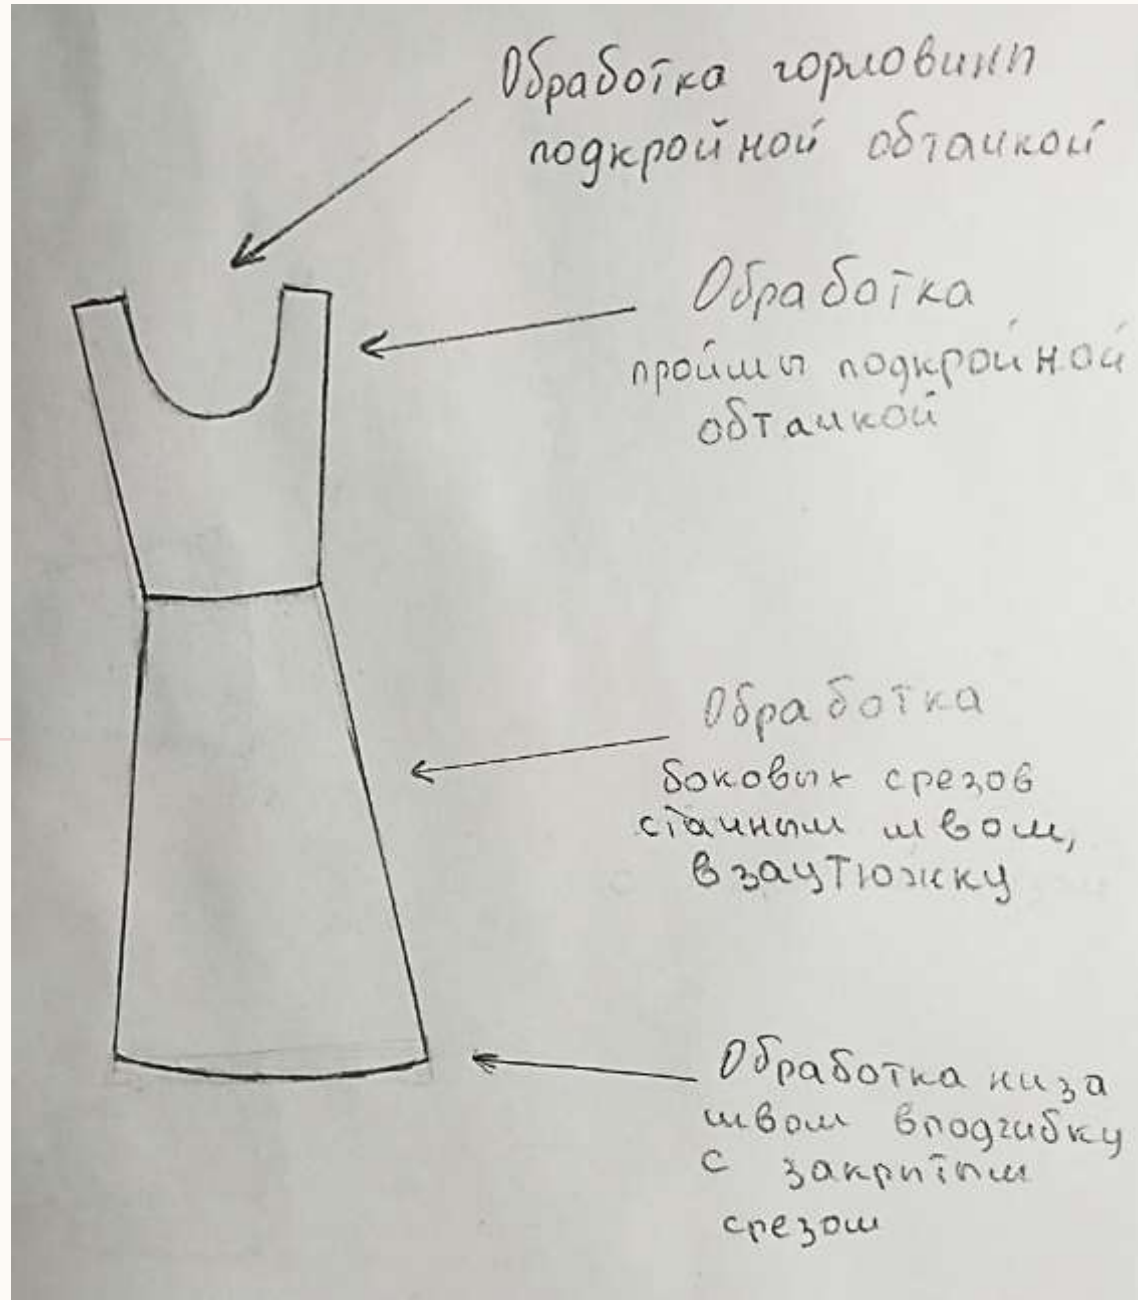 Обработка горловины
подкройной обтачкой
Обработка
проймы подкройной
обтачкой
Обработка
боковых срезов
стачным швом,
взаутюжку
Обработка низа
швом вподгибку
с закрытым
срезом